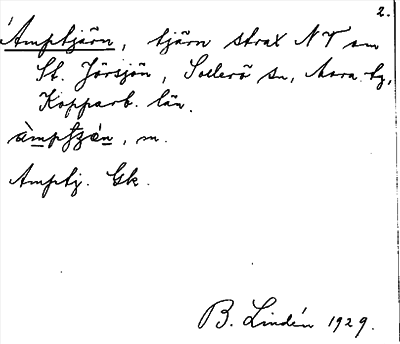 2.
Ámptjärn, tjärn strax NV om
St. Jörsjön, Sollerö sn, Mora tg,
Kopparb. län.
àmptʒén, m.
Amptj. Gk.
B. Lindén 1929.